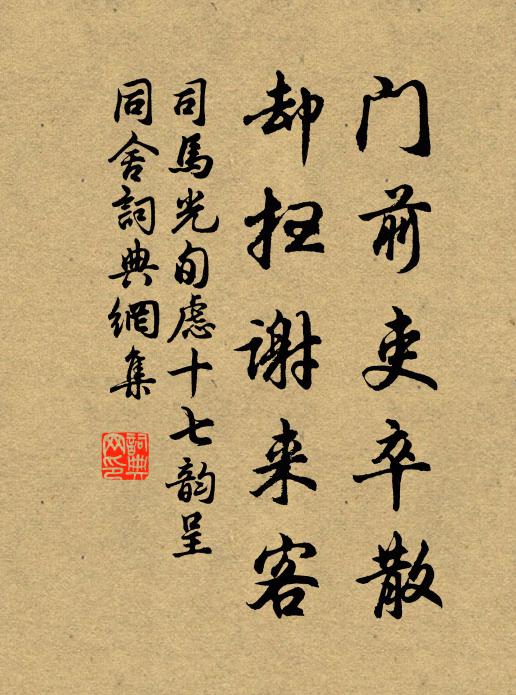 门前吏卒散
却扫谢来客
司馬光旬虑十七韵呈
同舍詞典網集
詞典
网印